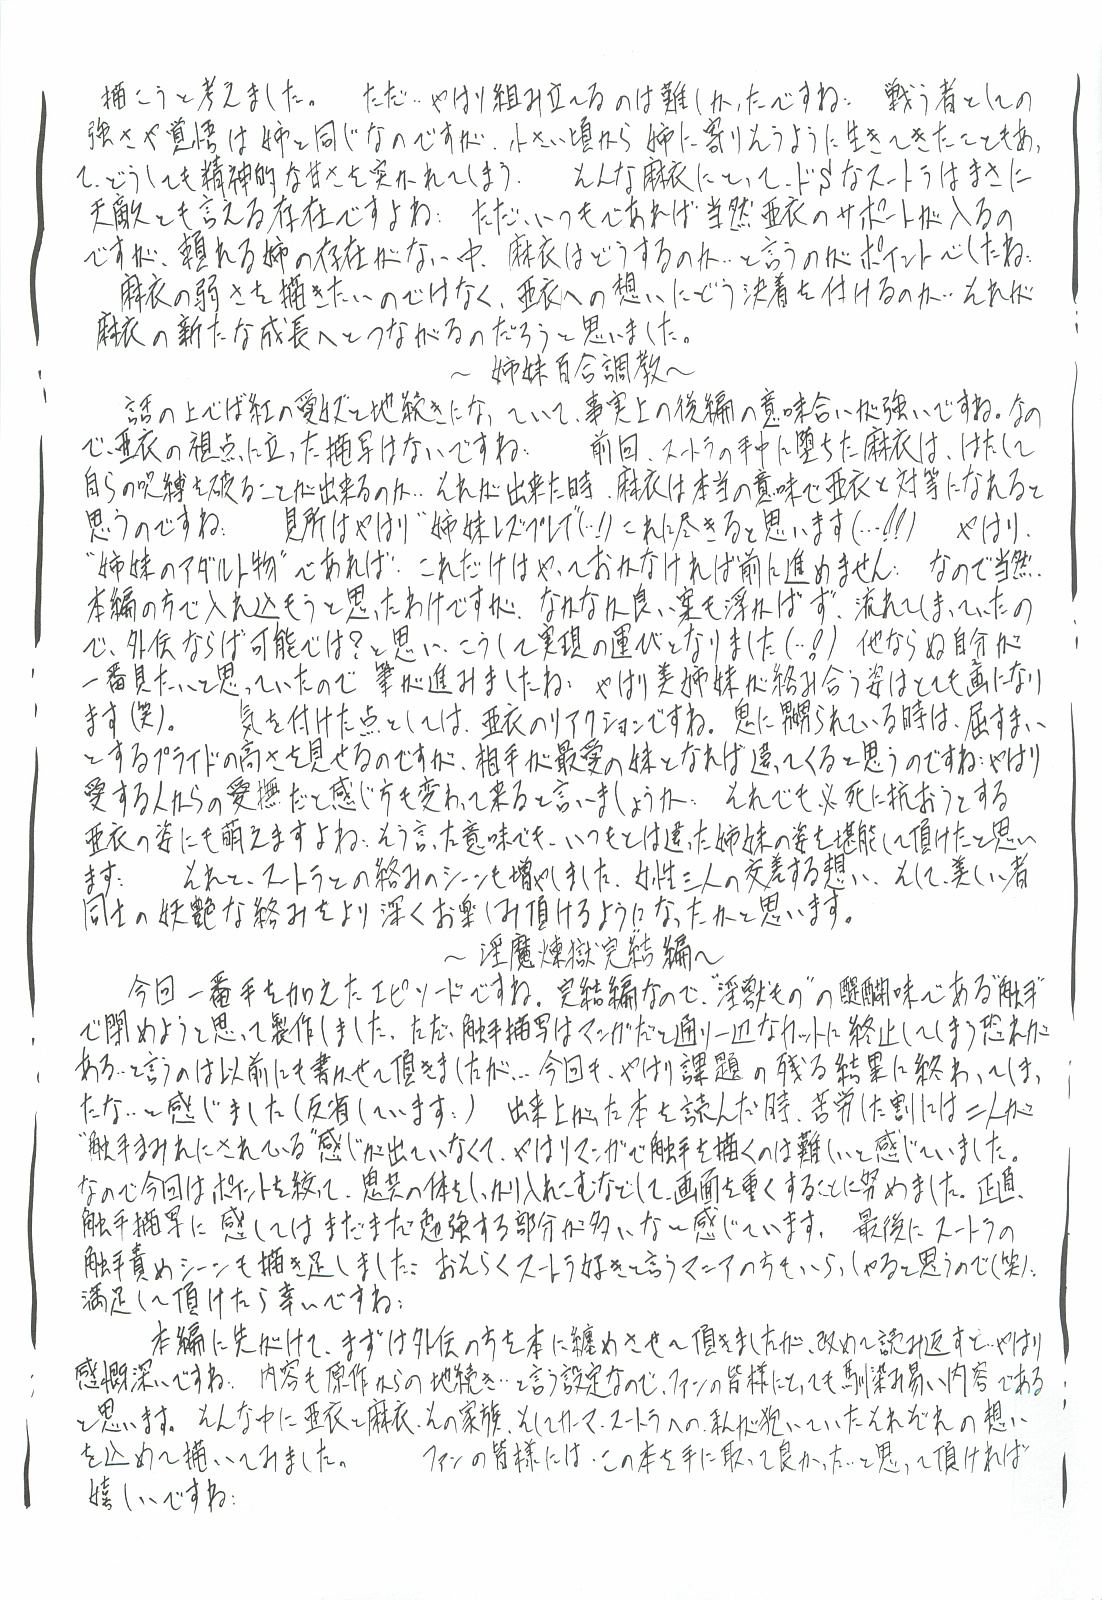 描こうと考えました。 ただ…やはり組み立てるのは難しかったですね… 戦う者としての
強さや覚悟は姉と同じなのですが、小さい頃から姉に寄りそうように生きてきたこともあっ
て、どうしても精神的な甘さを突かれてしまう… そんな麻衣にとって、ドSなスートラはまさに
天敵とも言える存在ですよね… ただ、いつもであれば当然亜衣のサポートが入るの
ですが、頼れる姉の存在がない中、麻衣はどうするのか…と言うのがポイントでしたね…
麻衣の弱さを描きたいのではなく、亜衣への想いにどう決着を付けるのか…それが
麻衣の新たな成長へとつながるのだろうと思いました。
～姉妹百合調教～
話の上では紅の受妊と地続きになっていて、事実上の後編の意味合いが強いですね。なの
で、亜衣の視点に立った描写はないですね… 前回、スートラの手中に堕ちた麻衣は、はたして
自らの呪縛を破ることが出来るのか…それが出来た時、麻衣は本当の意味で亜衣と対等になれると
思うのですね… 見所はやはり“姉妹レズプレイ”(…!!)これに尽きると思います(…!!!) やはり、
“姉妹のアダルト物”であれば…これだけはやっておかなければ前に進めません… なので当然、
本編の方で入れ込もうと思ったわけですが、なかなか良い案も浮かばず、流れてしまっていたの
で、外伝ならば可能では?と思い、こうして実現の運びとなりました(…!!) 他ならぬ自分が
一番見たいと思っていたので筆が進みましたね… やはり美姉妹が絡み合う姿はとても画になり
ます(笑)。 気を付けた点としては、亜衣のリアクションですね。鬼に嬲られている時は、屈すまい
とするプライドの高さを見せるのですが、相手が最愛の妹となれば違ってくると思うのですね…やはり
愛する人からの愛撫だと感じ方も変わって来ると言いましょうか… それでも必死に抗おうとする
亜衣の姿にも萌えますよね…そう言った意味でも、いつもとは違った姉妹の姿を堪能して頂けたと思い
ます… それと、スートラとの絡みのシーンも増やしました、女性三人の交差する想い、そして、美しい者
同士の妖艶な絡みをより深くお楽しみ頂けるようになったかと思います。
～淫魔煉獄完結編～
今回一番手を加えたエピソードですね。完結編なので、“淫獣もの”の醍醐味である“触手”
で閉めようと思って製作しました、ただ、触手描写はマンガだと通り一辺なカットに終止してしまう恐れが
ある…と言うのは以前にも書かせて頂きましたが…今回も、やはり課題の残る結果に終わってしまっ
たな…と感じました(反省しています…) 出来上がった本を読んだ時、苦労した割には二人が
“触手まみれにされている”感じが出ていなくて、やはりマンガで触手を描くのは難しいと感じていました。
なので今回はポイントを絞って、鬼共の体をしっかり入れこむなどして、画面を重くすることに努めました。正直、
触手描写に感してはまだまだ勉強する部分が多いな～感じています。 最後にスートラの
触手責めシーンも描き足しました… おそらくスートラ好きと言うマニアの方もいらっしゃると思うので(笑)…
満足して頂けたら幸いですね…
本編に先がけて、まずは外伝の方を本に纏めさせて頂きましたが、改めて読み返すと…やはり
感慨深いですね… 内容も原作からの地続き…と言う設定なので、ファンの皆様にとっても馴染み易い内容である
と思います。そんな中に亜衣と麻衣、その家族、そしてカーマ、スートラへの、私が抱いていたそれぞれの想い
を込めて描いてみました。 ファンの皆様には、この本を手に取って良かった…と思って頂ければ
嬉しいですね…